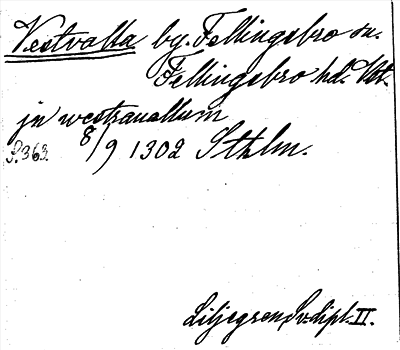 Vestvalla by. Fellingsbro sn.
Fellingsbro hd. Vstm.
jn westrauallum
8/9 1302 Sthlm.
S. 363.
Liljegren Sv. dipl. II.